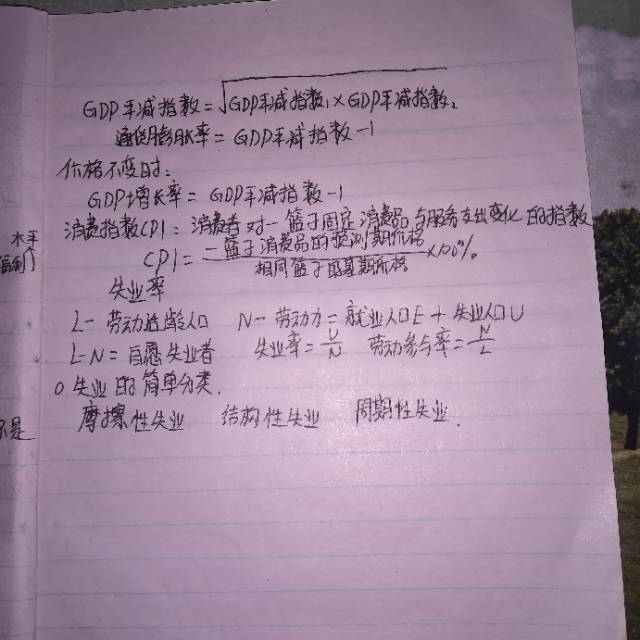 GDP平减指数=√GDP平减指数₁×GDP平减指数₂
通货膨胀率=GDP平减指数-1
价格不变时:
GDP增长率=GDP平减指数-1
消费指数CPI:消费者对一篮子固定消费品与服务支出变化的指数
CPI=一篮子消费品的预测期价格/相同篮子的基期价格×100%
失业率
L-劳动适龄人口 N-劳动力=就业人口E+失业人口U
L-N=自愿失业者 失业率=U/N 劳动参与率=N/L
○失业的简单分类.
摩擦性失业 结构性失业 周期性失业.
水平